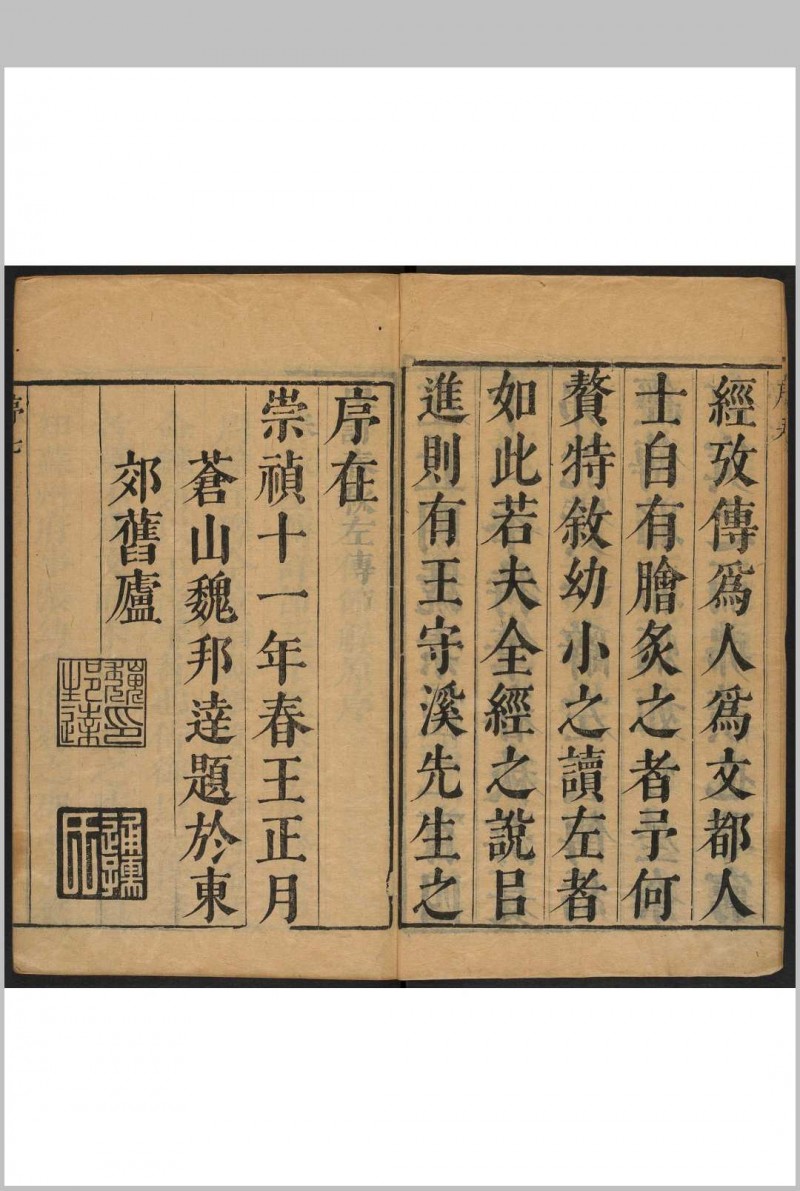 經攷傳爲人爲文都人
士自有膾炙之者予何
贅特敘幼小之讀左者
如此若夫全經之說㠯
進則有王守溪先生之
序在
崇禎十一年春王正月
蒼山魏邦達題於東
郊舊廬
魏邦達印
序七